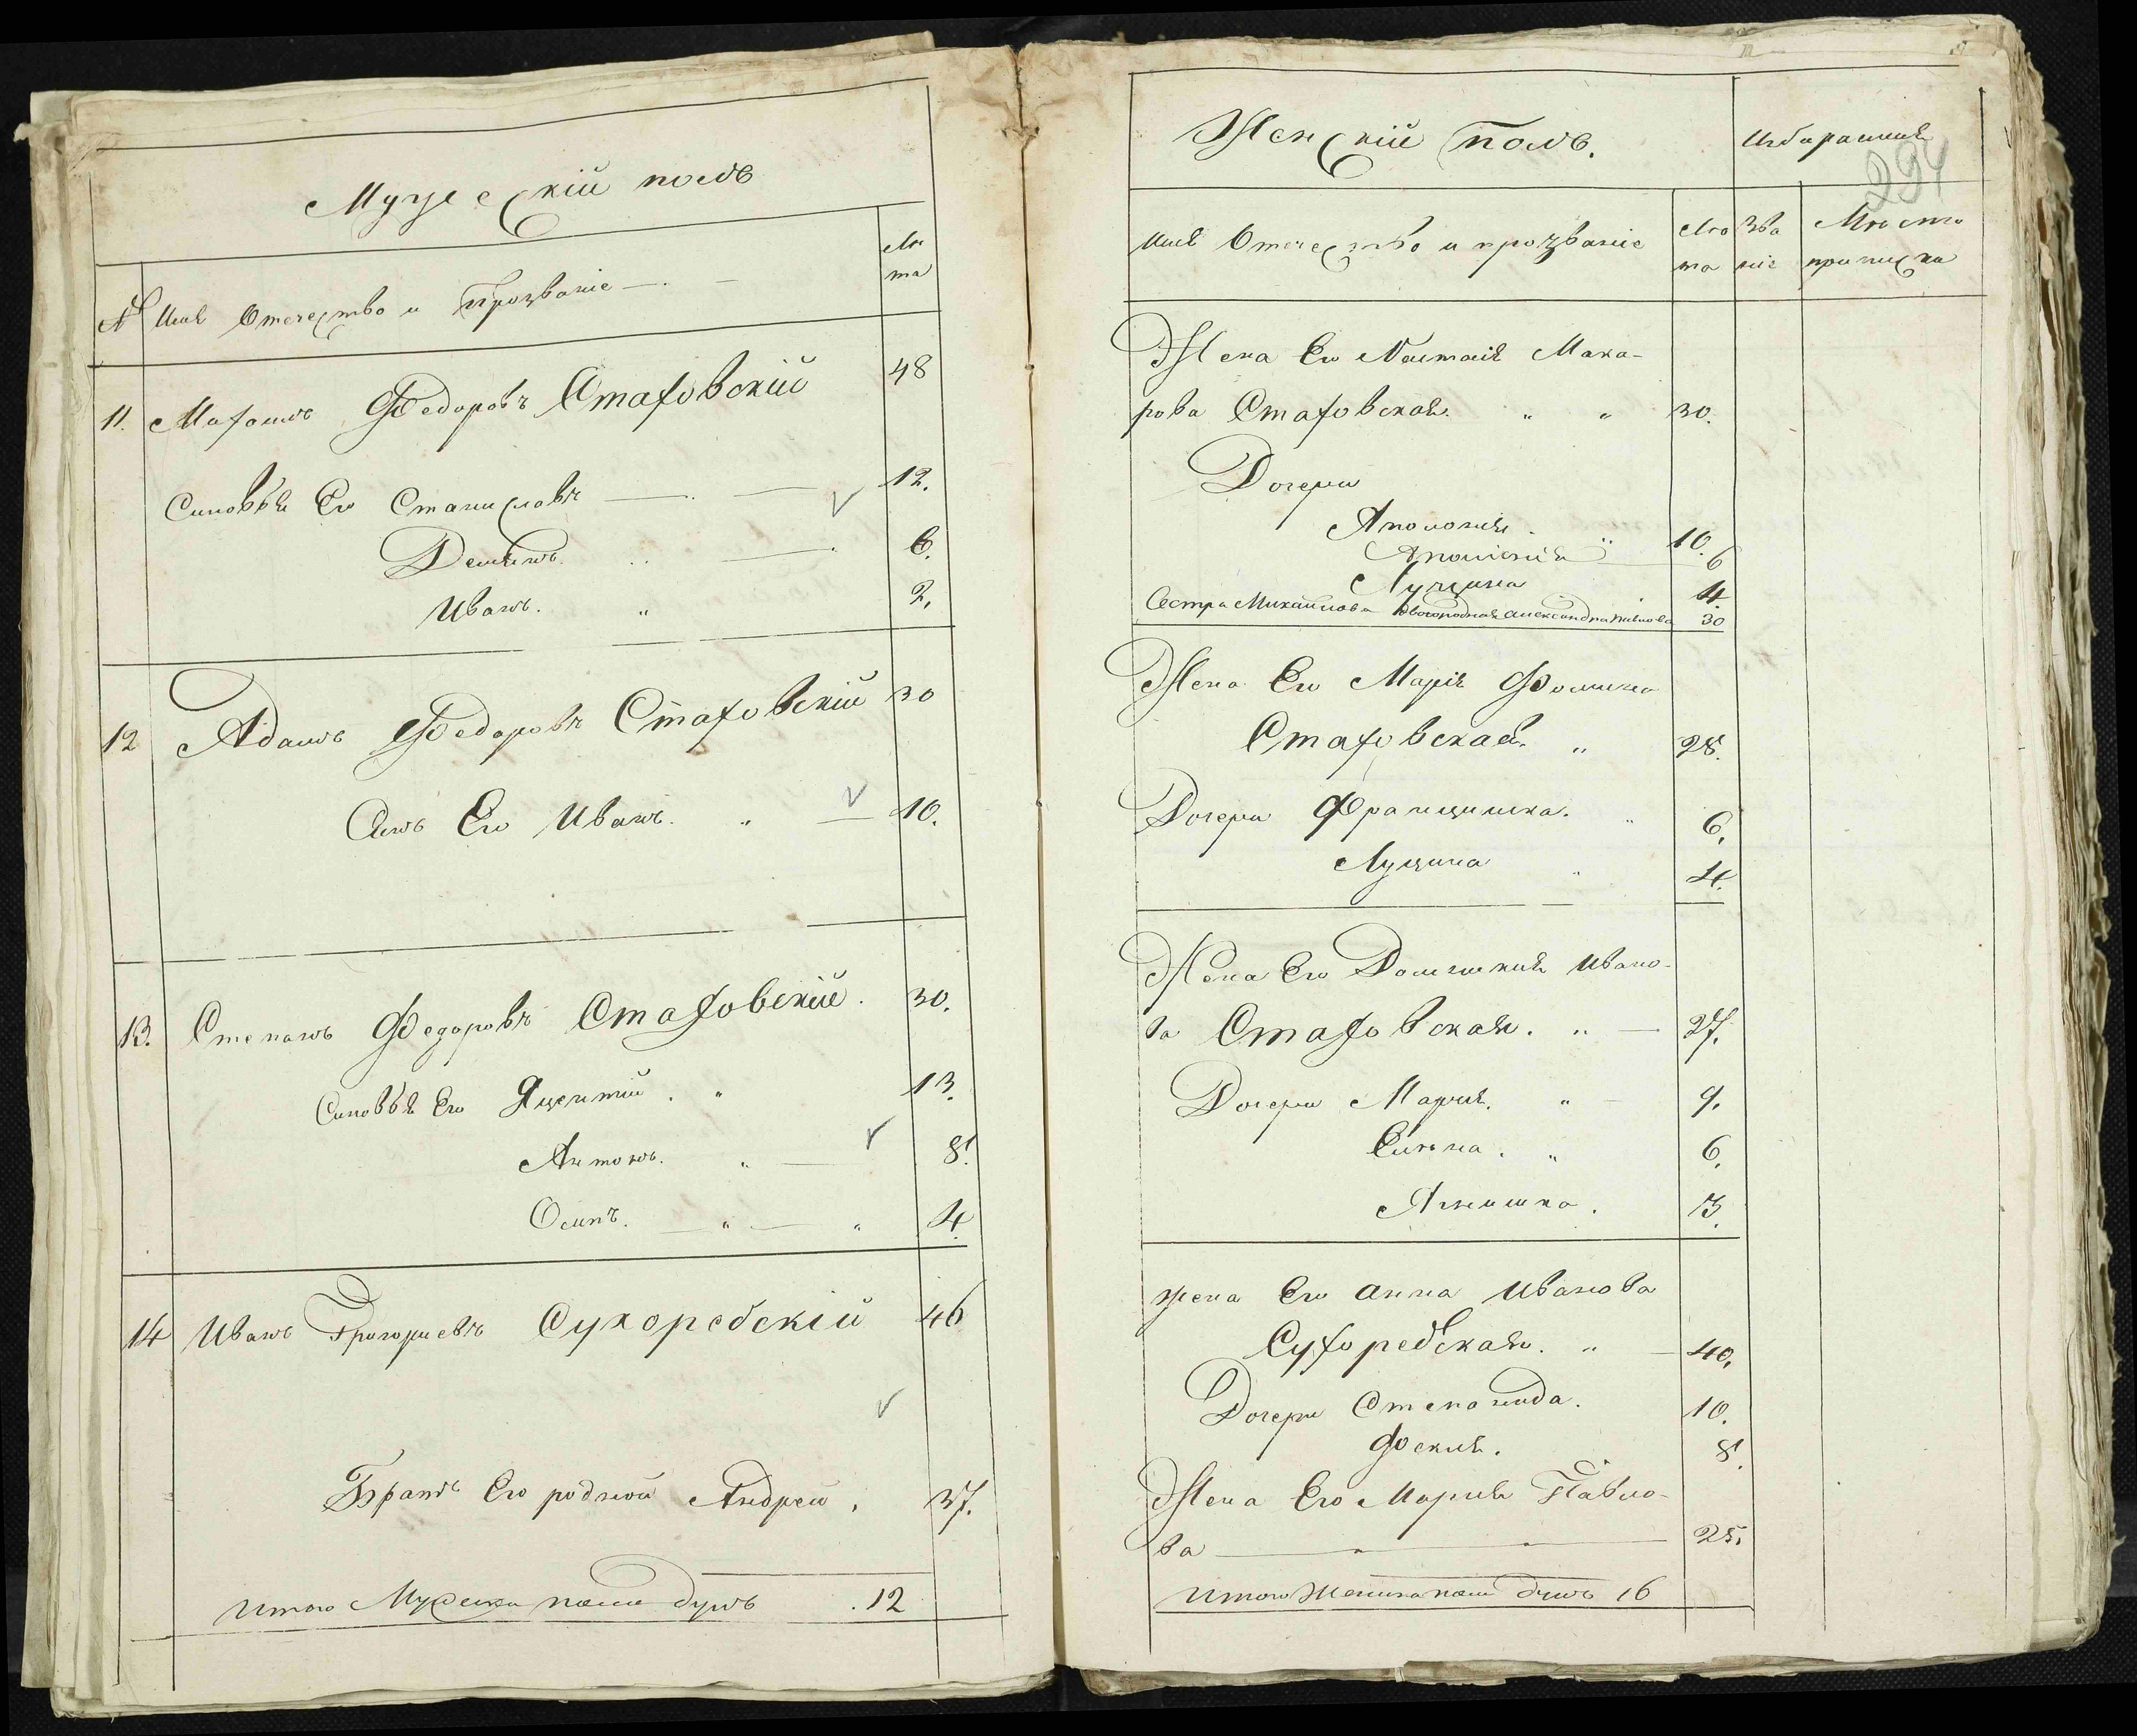 Мужескій полъ
№ Имя Отечество и Прозваніе
Лѣ
та
11. Михаилъ Федоровъ Стаховскій 48
Синовья Его Станиславъ 12.
Демянъ. 6.
Иванъ. 2.
12 Адамъ Федоровъ Стаховскій 30
Синъ Его Иванъ. 10.
13. Степанъ Федоровъ Стаховскій. 30.
Синовья Его Яцентій. 13.
Антонъ. 8.
Осипъ. 4.
14 Иванъ Григориевъ Сухоребскій 46
Братъ Его родной Андрей, 37.
Итого Мужеска пола душъ 12
Женскій полъ.
294
Имя Отечество и прозваніе
Лѣ
та
Зва
ніе
Мѣсто
приписки
Жена Его Настасія Мака-
рова Стаховская. 30.
Дочери
Аполонія. 10.
6
Луцина 4.
Сестра Михайлова двоюродная Александра Павлова 30
Жена Его Марія Фомина
Стаховская. 28.
Дочери Францишка. 6.
Луцина 4.
Жена Его Доминикия Ивано-
ва Стаховская. 27.
Дочери Мария. 9.
Елѣна. 6.
Агнишка. 3.
жена Его Анна Иванова
Сухоребская. 40.
Дочери Степанида. 10.
Фекия. 8.
Жена Его Мария Павло-
ва 25.
Итого Женска пола душъ 16